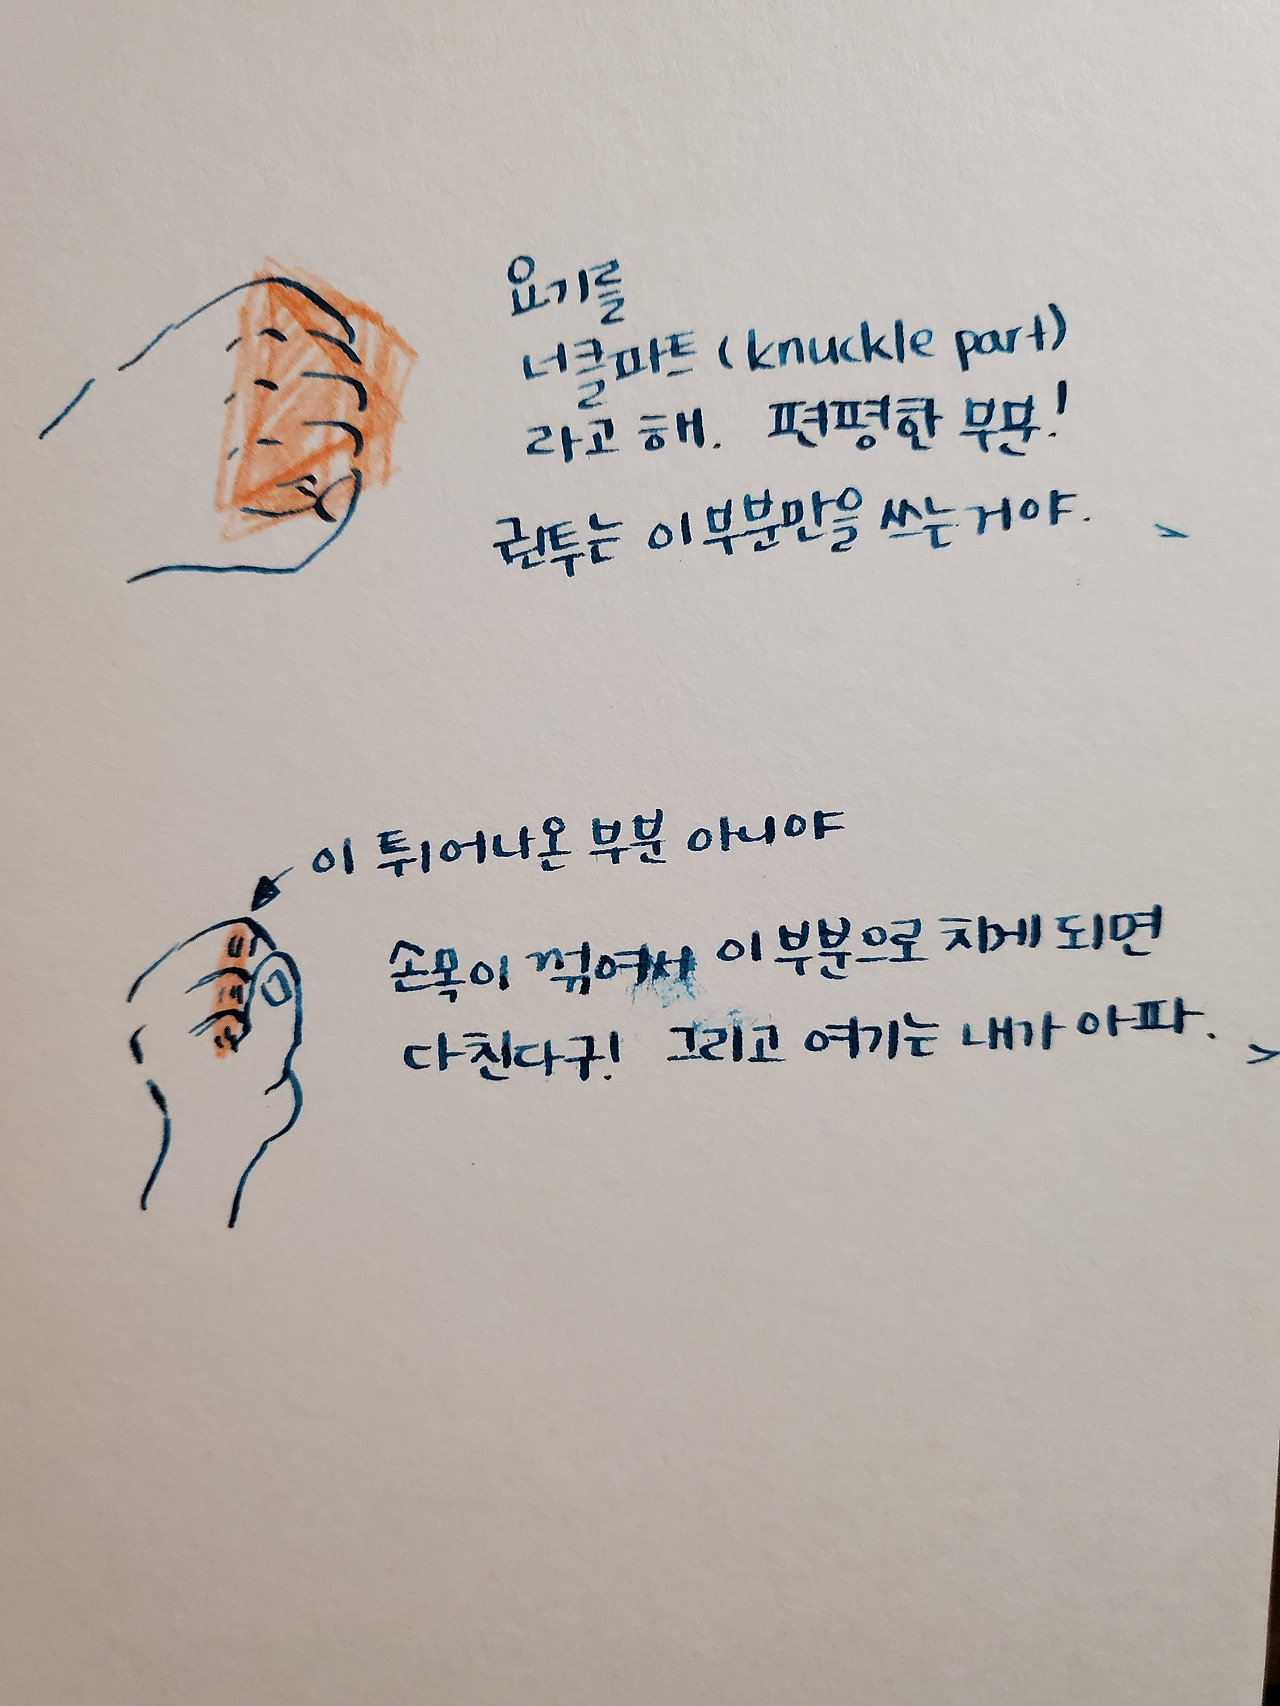 요기를
너클파트 (knuckle part)
라고 해. 편평한 부분!
권투는 이 부분만을 쓰는거야.
이 튀어나온 부분 아니야
손목이 꺾여서 이 부분으로 치게 되면
다친다구! 그리고 여기는 내가 아파.